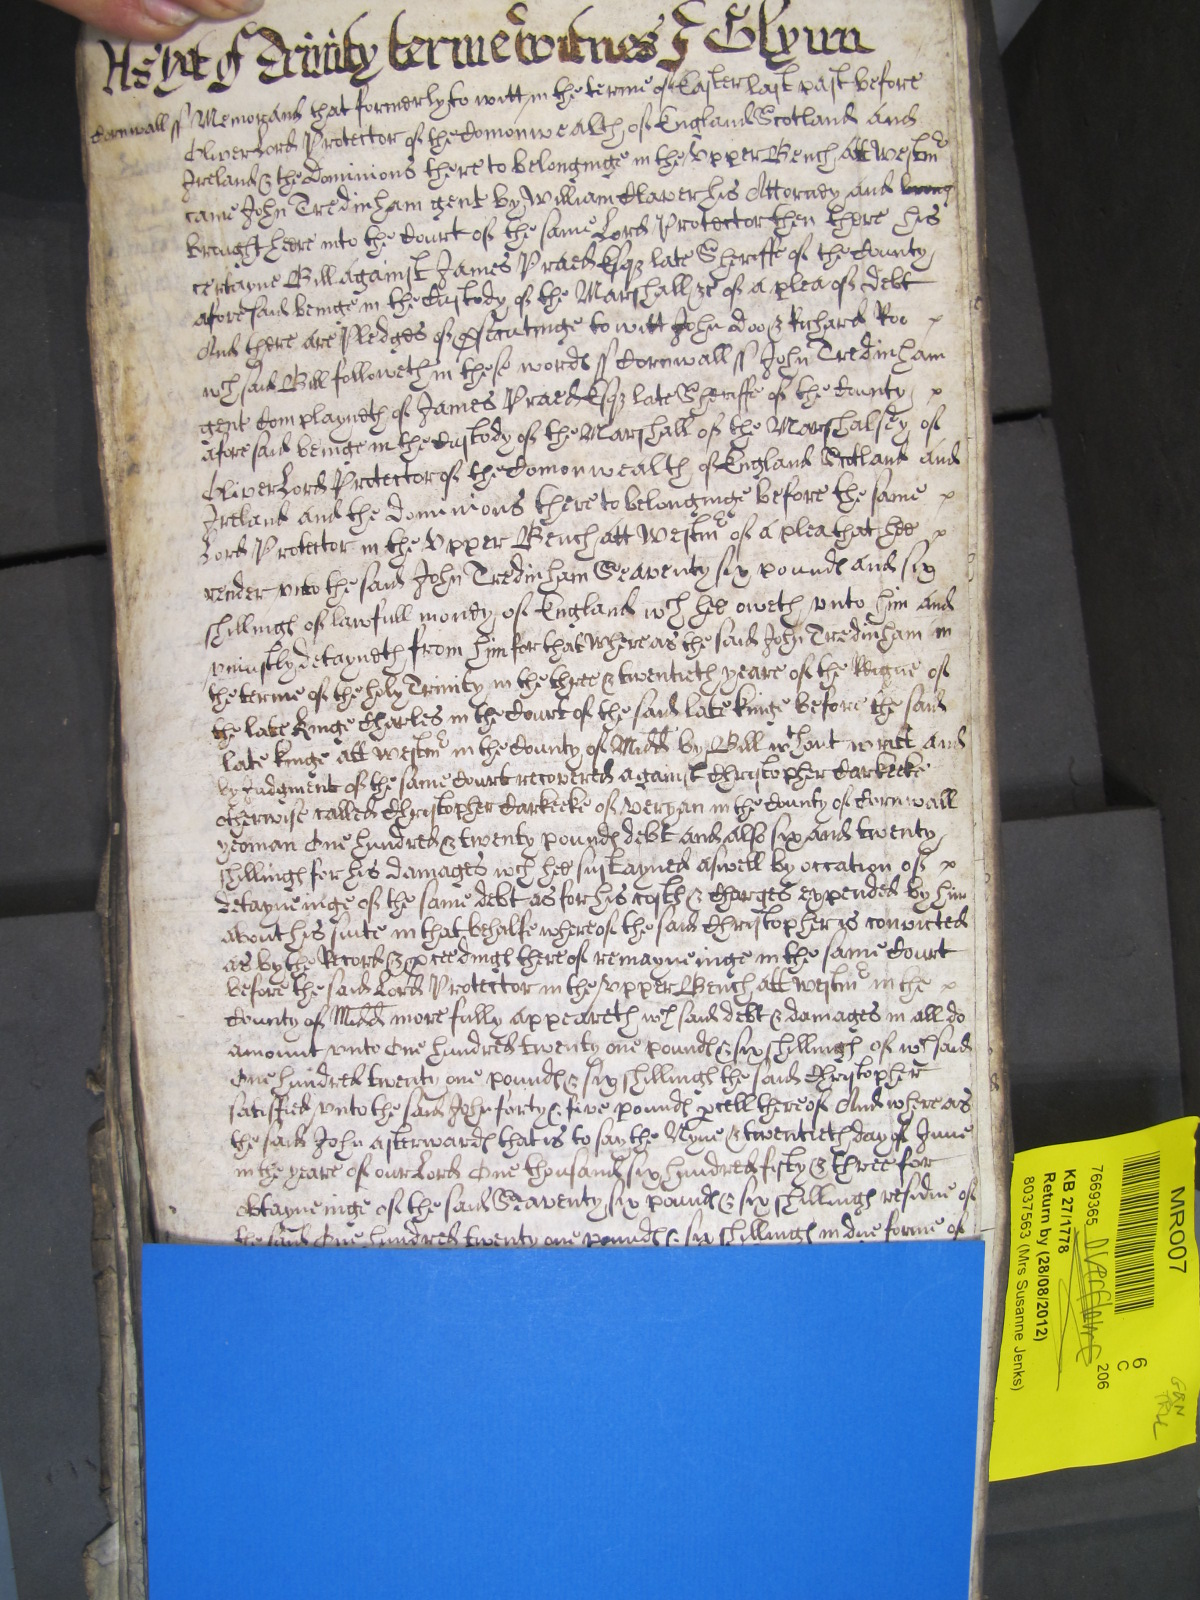 As yet of Trinity terme witnes J Glynn
Cornwall ss Memorand that formerly to witt in the terme of Easter last past before
Oliver Lord Protector of the Comonwealth of England Scotland and
Ireland & the dominions there to belonginge in the Upper Bench att Westm
came John Tredinham gent by William Claver his Attorney and broug
brought heere into the Court of the same Lord Protector then there his
certayne Bill against James Praed Esqr late Sheriffe of the County
aforesaid beinge in the Custody of the Marshall &c of a plea of debt
And there are Pledges of psecutinge to witt John Doo & Richard Roo
wch said Bill followeth in these words ss Cornwall ss John Tredinham
gent Complayneth of James Praed Esqr late Sheriffe of the County
aforesaid beinge in the Custody of the Marshall of the Marshalsey of
Oliver Lord Protector of the Comonwealth of England Scotland and
Ireland and the dominions there to belonginge before the same
Lord Protector in the Upper Bench att Westm of a plea that hee
render unto the said John Tredinham Seaventy six pounds and six
shillings of lawfull money of England wch hee oweth unto him and
uniustly detayneth from him for that Whereas the said John Tredinham in
the terme of the holy Trinity in the three & twentieth yeare of the Reigne of
the late Kinge Charles in the Court of the said late kinge before the said
late kinge att Westm in the County of Midd by Bill wthout writt and
by Judgment of the same Court recovered against Christopher Carkeeke
otherwise called Christopher Carkeeke of Veryan in the County of Cornwall
yeoman One hundred & twenty pounds debt and also six and twenty
shillings for his damages wch hee sustayned aswell by occation of
detayneinge of the same debt as for his costs & Charges expended by him
about his suite in that behalfe whereof the said Christopher is convicted
as by the Record & pceedings thereof remayneinge in the same Court
before the said Lord Protector in the Upper Bench att Westm in the
County of Midd more fully appeareth wch said debt & damages in all do
amount unto One hundred twenty one pounds & six shillings of wch said
One hundred twenty one pounds & six shillings the said Christopher
satisfied unto the said John forty & five pounds pcell thereof And whereas
the said John afterwards that is to say the Nyne & twentieth day of June
in the yeare of our Lord One thousand six hundred fifty & three for
obtayneinge of the said Seaventy six pounds & six shillings residue of
the said One hundred twenty one pounds & six shillings in due forme of
MR007
7669365
KB 27/1778
Return by (28/08/2012)
8037563 (Mrs Susanne Jenks)
6
C
206